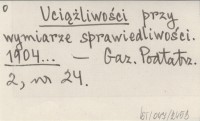 Uciążliwości przy
wymiarze sprawiedliwości.
1904... — Gaz. Poetatrz.
2, nr 24.